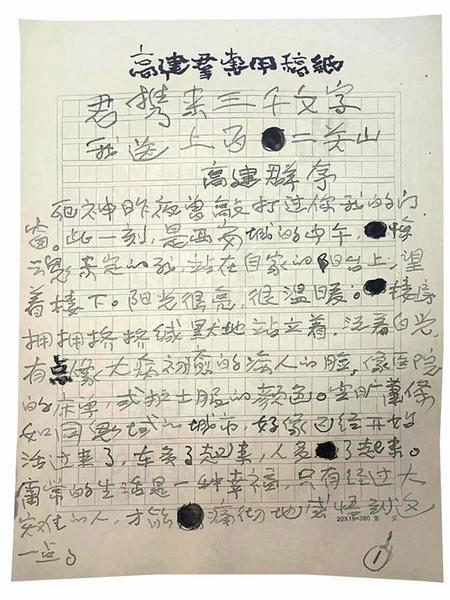 高建群专用稿纸
君携来三千文字
我送上函二关山
高建群序
死神昨夜曾敲打过你我的门
窗。此一刻,是西安城的中午,惊
魂未定的我,站在自家的阳台上,望
着楼下。阳光很亮,很温暖。楼房
拥拥挤挤绒黑大地站立着,泛着白光,
有点像大病初愈的病人的脸,像医院
的床单,或护士服的颜色。空旷萧条
如同鬼域的城市,好像已经开始
活过来了,车多了起来,人多了起来。
庸常的生活是一种幸福,只有经过大
灾难的人,才能痛彻地感悟到这
一点。
20X19=380 第 页
1